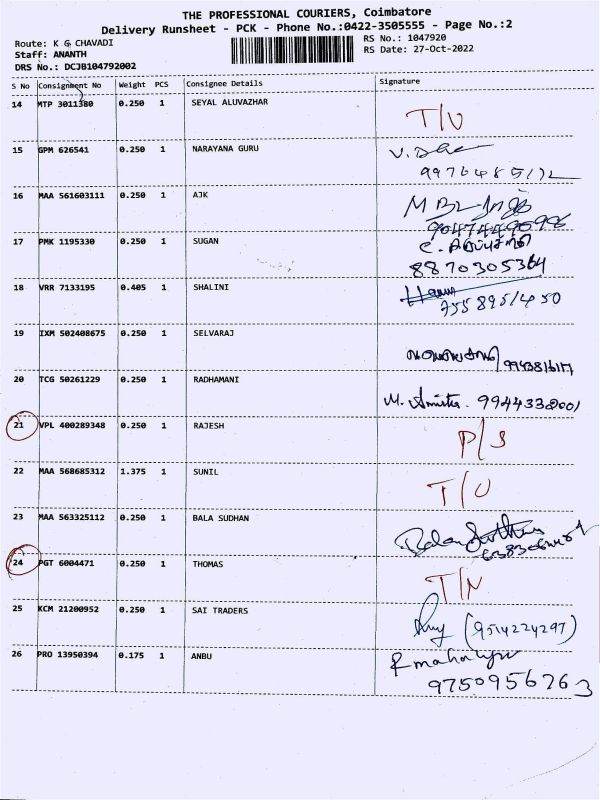 THE PROFESSIONAL COURIERS, Coimbatore
Delivery Runsheet - PCK - Phone No.:0422-3505555 - Page No.:2
Route: K G CHAVADI
RS No.: 1047920
Staff: ANANTH
RS Date: 27-Oct-2022
DRS No.: DCJB104792002
S No Consignment No Weight PCS Consignee Details Signature
14 MTP 3011380 0.250 1 SEYAL ALUVAZHAR T/U
15 GPM 626541 0.250 1 NARAYANA GURU
16 MAA 561603111 0.250 1 AJK
17 PMK 1195330 0.250 1 SUGAN
8870305364
18 VRR 7133195 0.405 1 SHALINI
7558951450
19 IXM 502408675 0.250 1 SELVARAJ
20 TCG 50261229 0.250 1 RADHAMANI
21 VPL 400289348 0.250 1 RAJESH P/S
22 MAA 568685312 1.375 1 SUNIL T/U
23 MAA 563325112 0.250 1 BALA SUDHAN
24 PGT 6004471 0.250 1 THOMAS T/N
25 KCM 21200952 0.250 1 SAI TRADERS (9514224297)
26 PRO 13950394 0.175 1 ANBU
9750956763